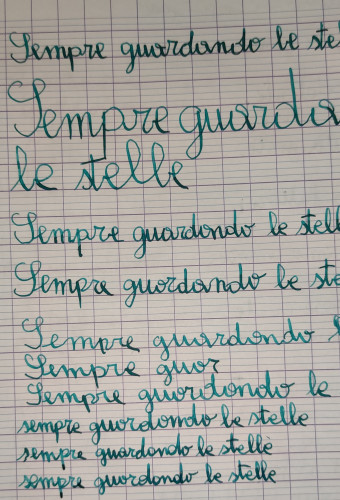 Sempre guardando le ste
Sempre guarda
le stelle
Sempre guardando le stell
Sempre guardando le ste
Sempre guardando s
Sempre guar
Sempre guardando le
sempre guardando le stelle
sempre guardando le stelle
sempre guardando le stelle